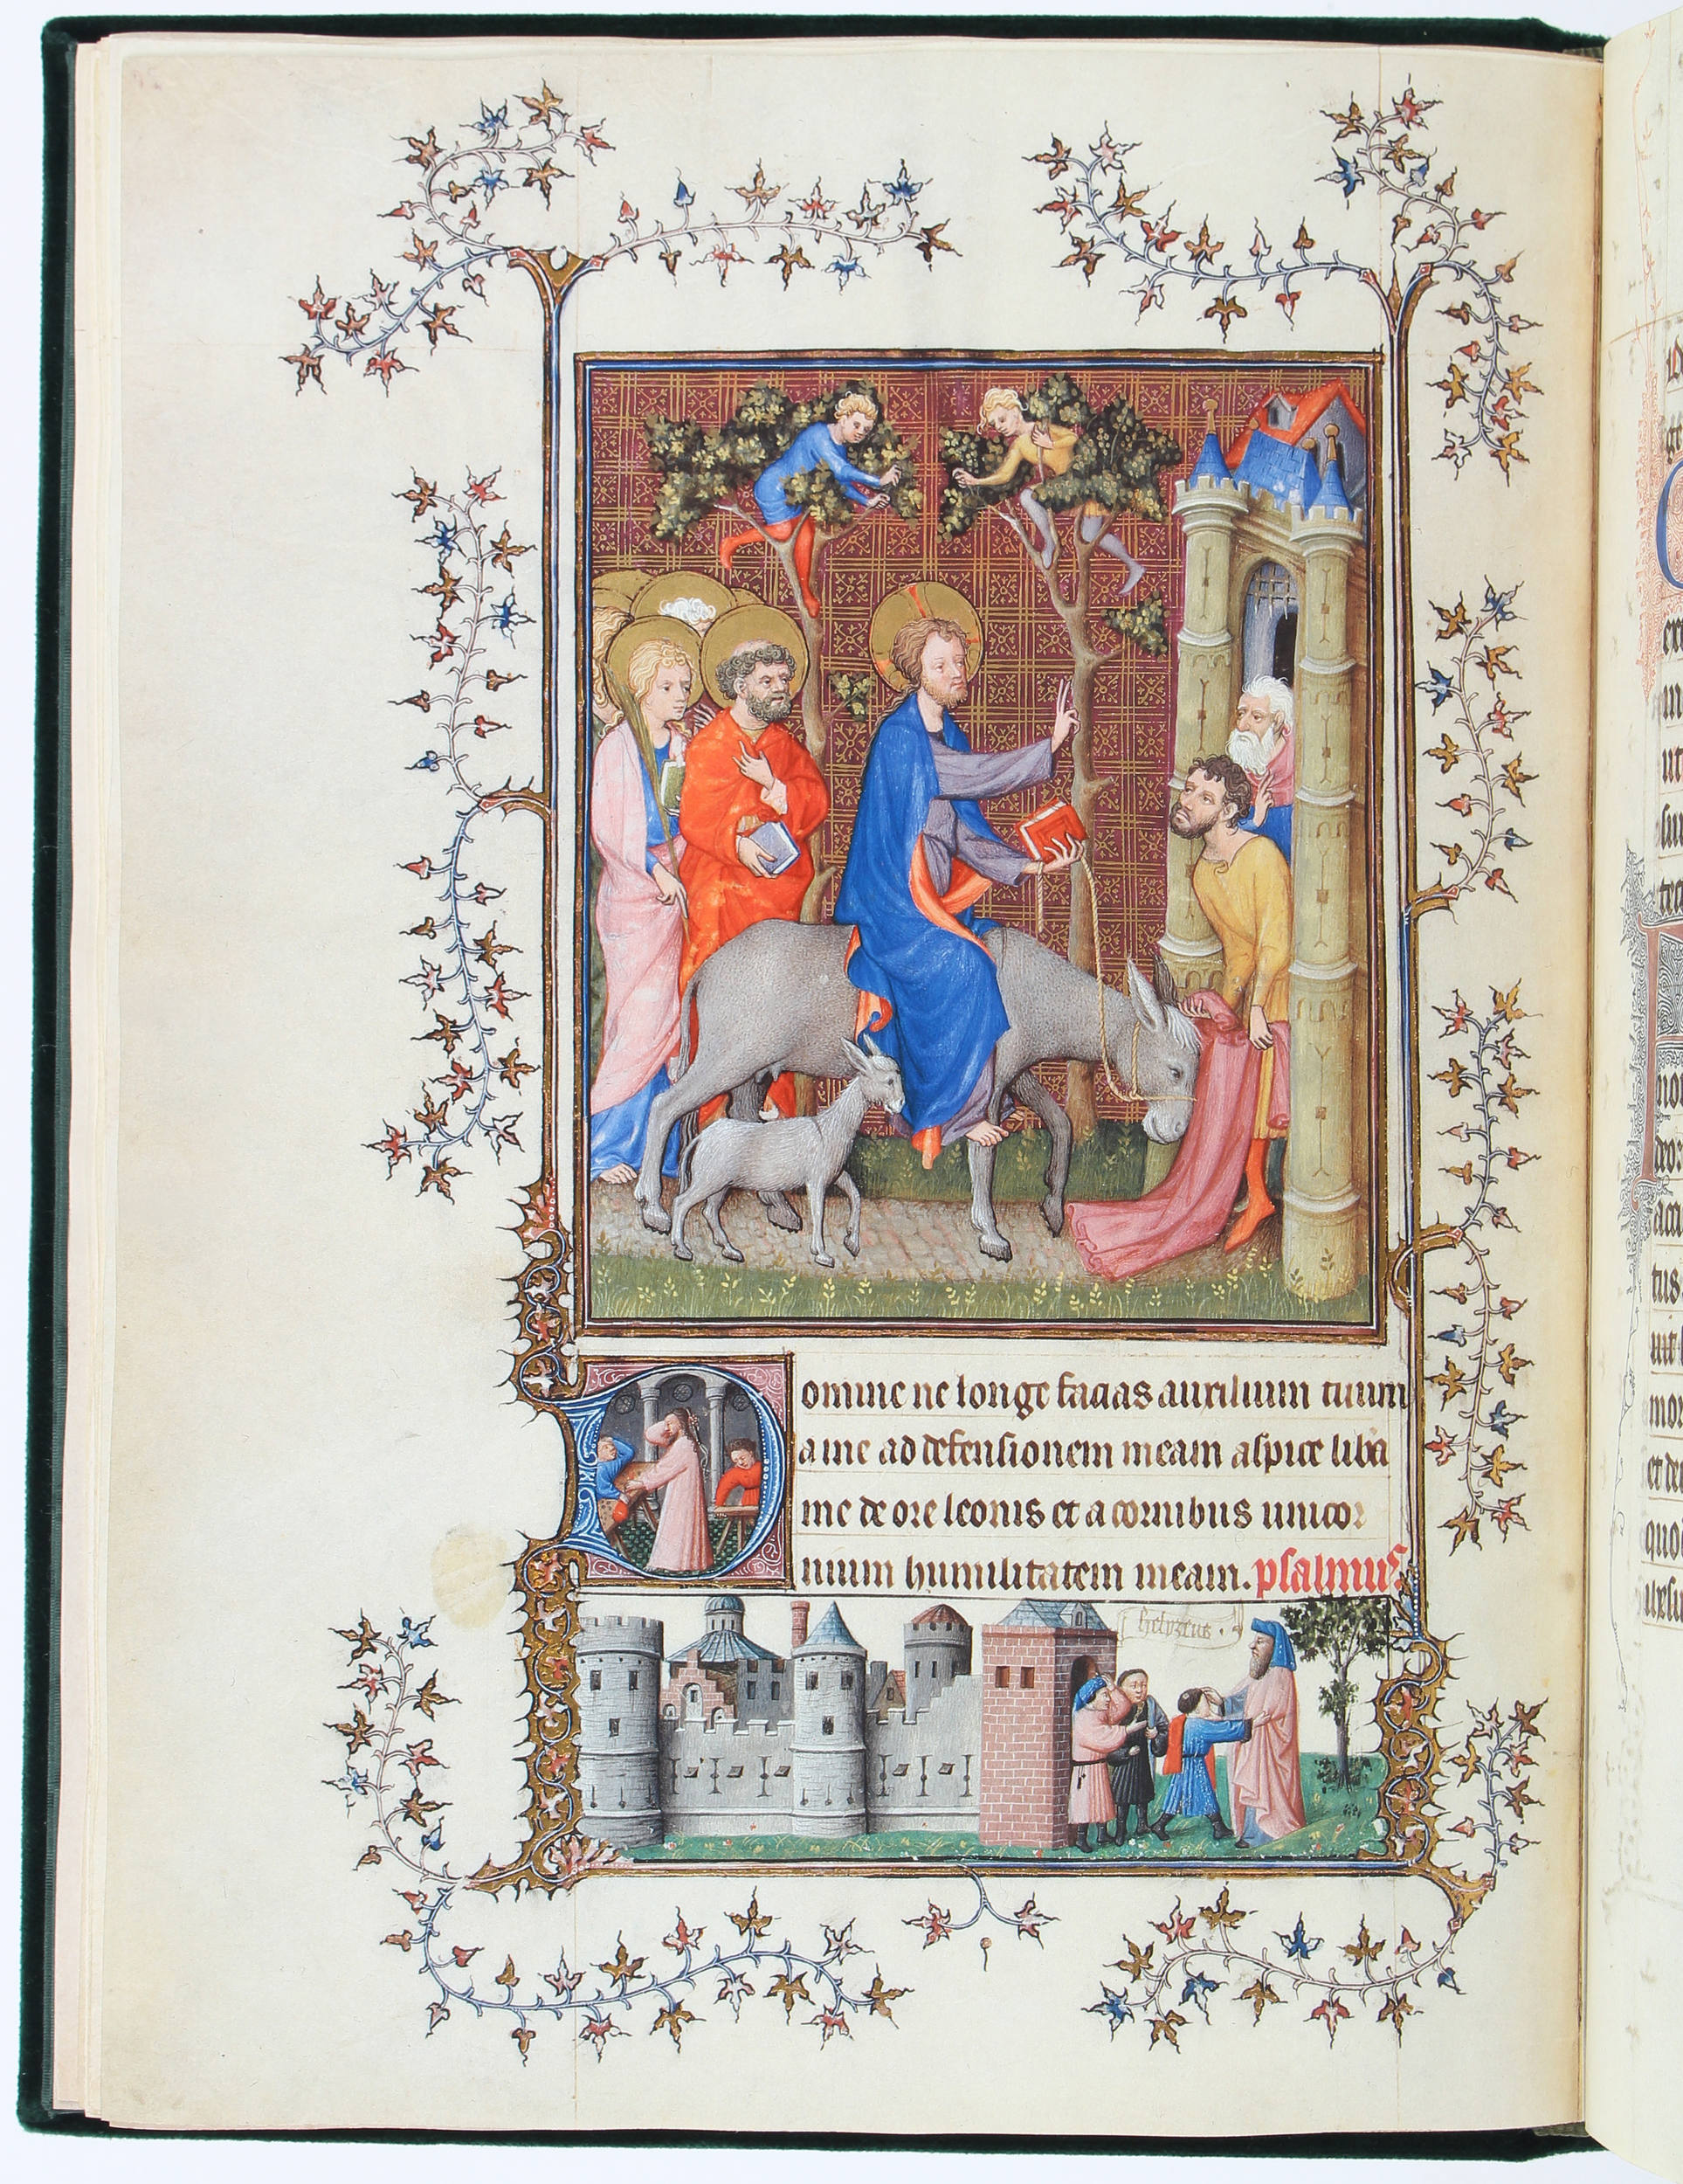 Domine ne longe facias auxilium tuum
a me ad defensionem meam aspice liba
me de ore leonis et a cornibus unicor
nuum humilitatem meam. psalmus
helyzeus.